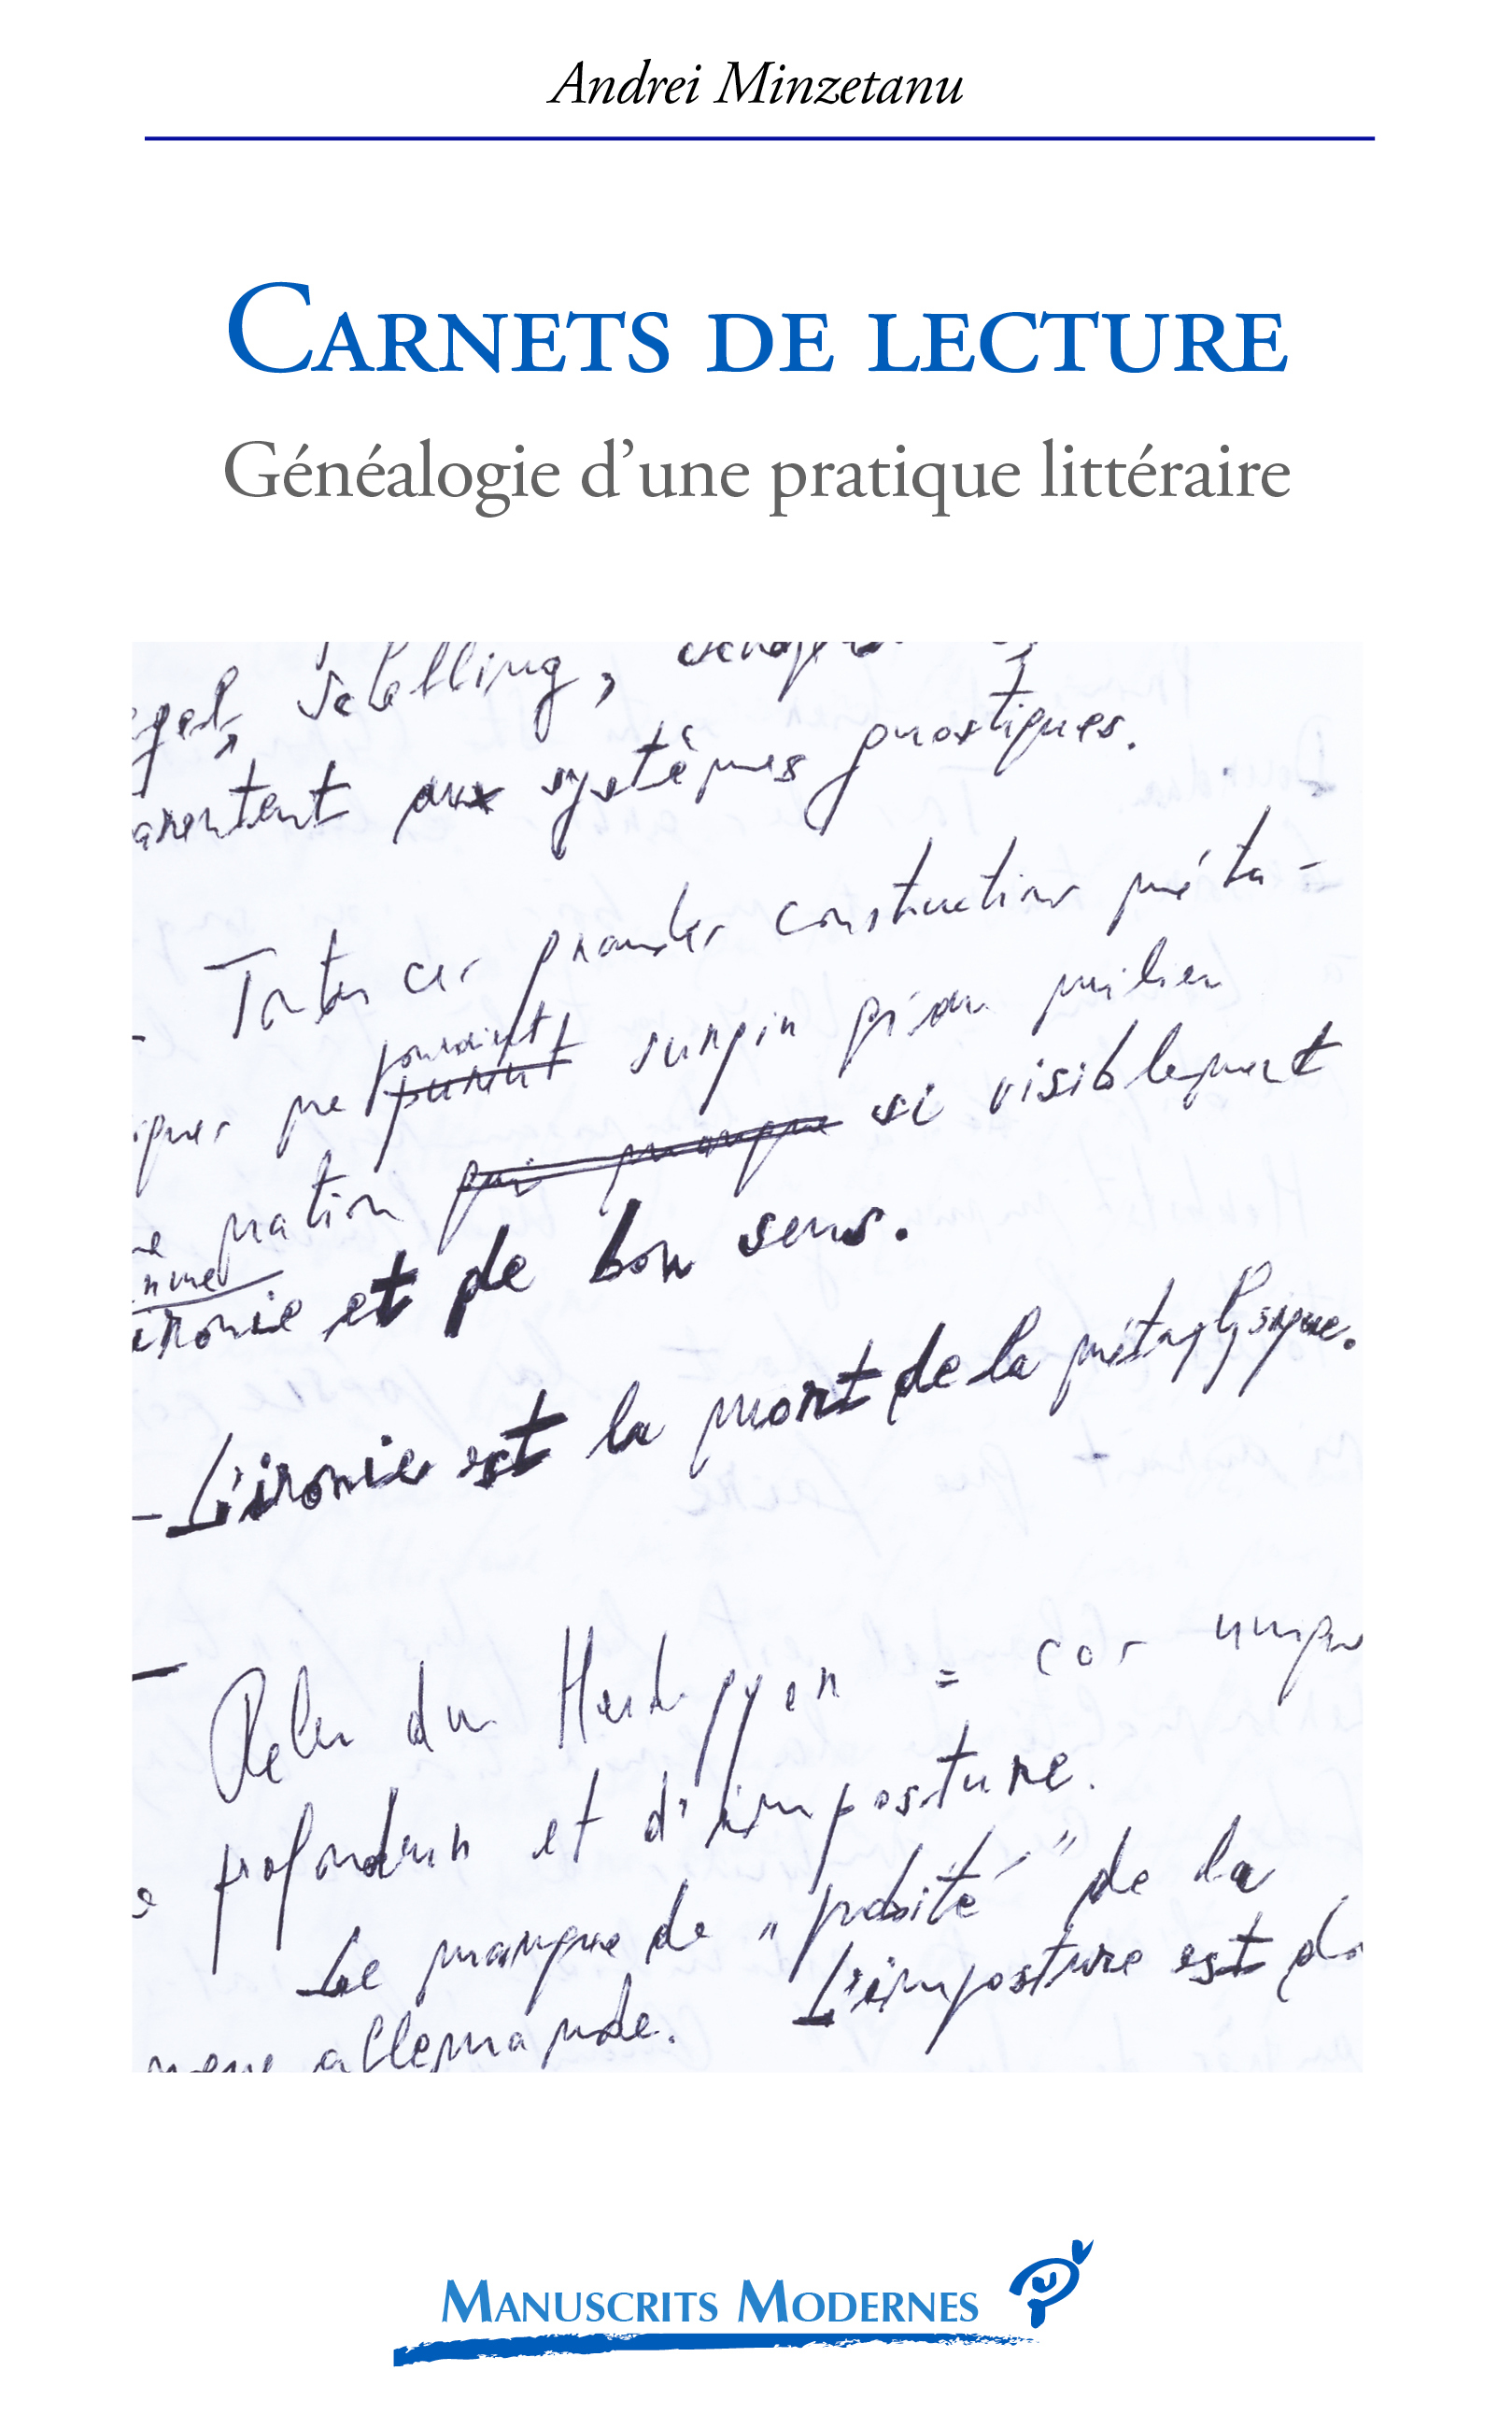 Andrei Minzetanu
Carnets de lecture
Généalogie d'une pratique littéraire
Schelling,
aux systèmes gnostiques.
Toutes ces grandes constructions méta-
ne pouvaient surgir qu'au milieu
nation qui manque si visiblement
ironie et de bon sens.
- L'ironie est la mort de la métaphysique.
- Relu du Heidegger = cas unique
profondeur et d'imposture.
Le manque de "probité" de la
allemande. L'imposture est
Manuscrits Modernes